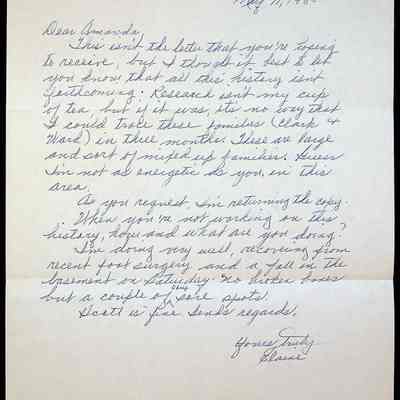 May 11, 19
Dear Amanda,
This isn't the letter that you're
to receive, but I thought it best to let
you know that all this history isn't
forthcoming. Research isn't my cup
of tea but if it was, it's no way that
I could trace these families (Clark &
Ward) in three months. These are large
and sort of mixed up families. Guess
I'm not as energetic as you, in this
area.
As you request, I'm returning the copy.
When you're not working on this
history, how and what are you doing?
I'm doing very well, recovering from
recent foot surgery and a fall in the
basement on Saturday. No broken bones
but a couple of sore spots.
Scott is fine. Sends regards.
Yours Truly
Elaine